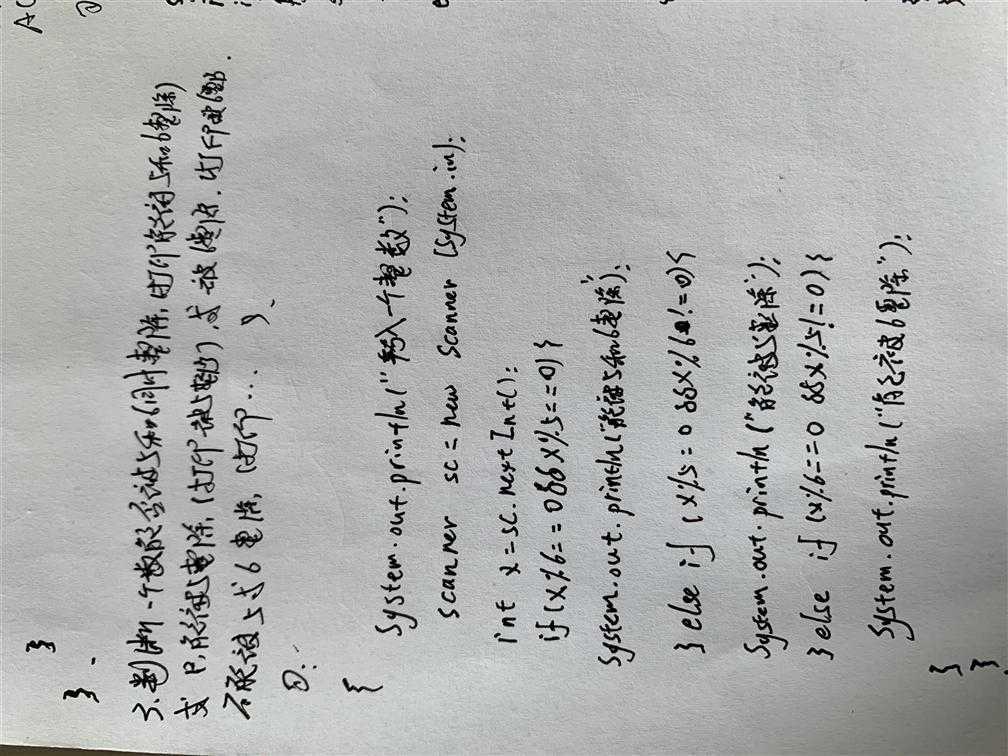 }
}
3.判断一个数能否被5和6同时整除,打印能被5和6整除)
或只能被5整除,(打印被5整除),或被6整除.打印被6整除.
不能被5或6整除,(打印...)
②:
{
System.out.println("输入一个整数");
scanner sc = new Scanner (System.in);
int x = sc.nextInt();
if (x%6==0&&x%5==0){
System.out.println("能被5和6整除");
} else if (x%5=0&&x%6!=0){
System.out.println("能被5整除");
} else if (x%6==0&&x%5!=0){
System.out.println("能被6整除");
}
}